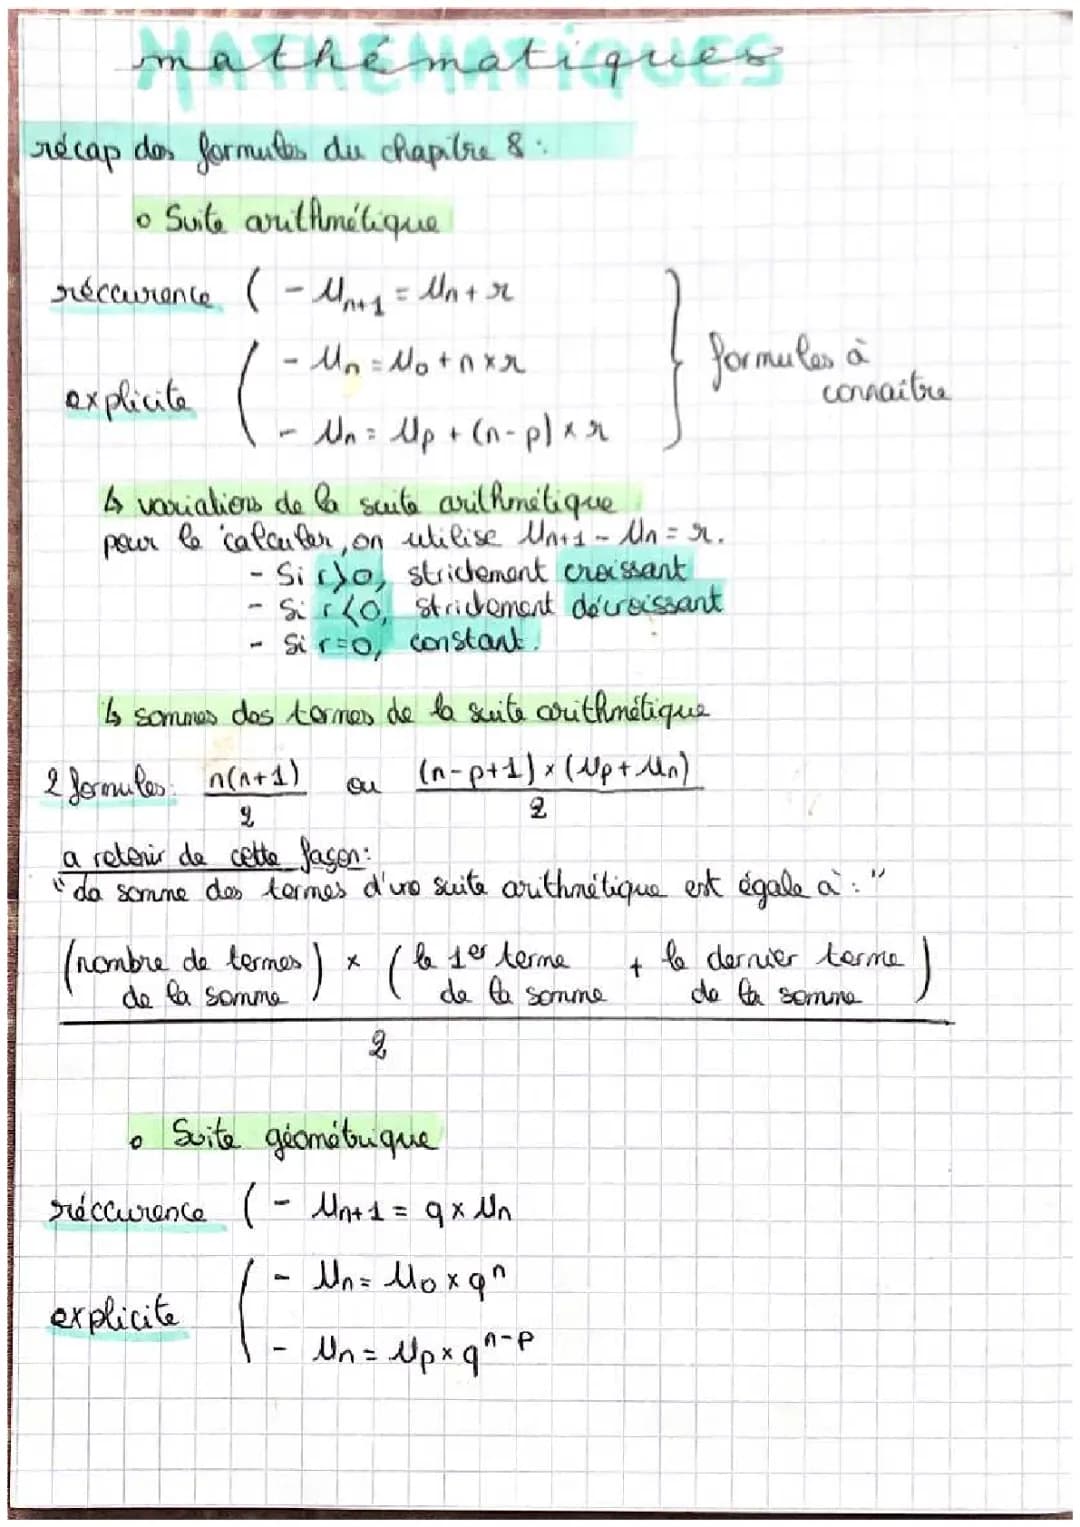 mathématiques
MATHÉMATIQUES
récap des formules du chapitre 8 :
o Suite arithmétique
réccurence ( - Un+1 = Un + r
explicite ( - Un = U0 + n × r
- Un = Up + (n-p) × r
} formules à connaitre
↳ variations de la suite arithmétique
pour le calculer, on utilise Un+1 - Un = r.
- Si r>0, strictement croissant
- Si r<0, strictement décroissant
- Si r=0, constant.
↳ sommes des termes de la suite arithmétique
2 formules: n(n+1)/2 ou (n-p+1) × (Up + Un)/2
a retenir de cette façon:
"La somme des termes d'une suite arithmétique est égale à : "
(nombre de termes de la somme) × (le 1er terme de la somme + le dernier terme de la somme)
2
o Suite géométrique
réccurence ( - Un+1 = q × Un
explicite ( - Un = U0 × qⁿ
- Un = Up × qⁿ⁻ᵖ